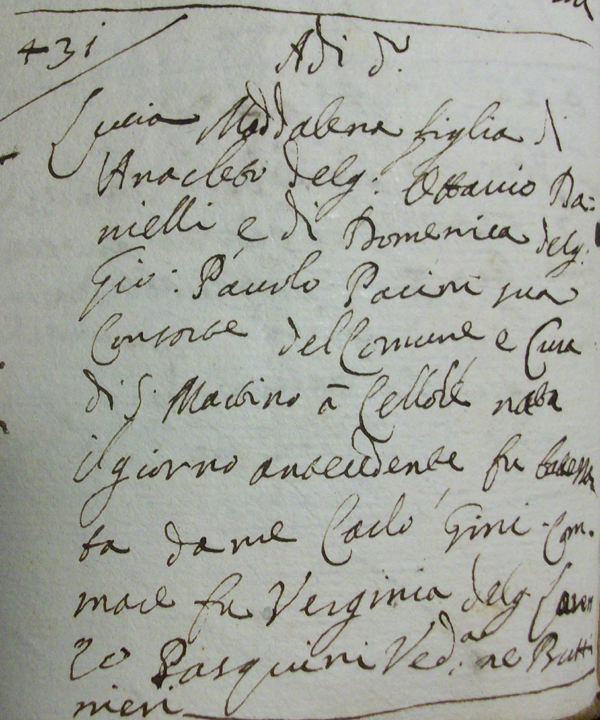 431
Adi d.°
Lucia Maddalena figlia di
Anacleto del q: Ottavio Da=
nielli e di Domenica del q:
Gio: Pauolo Pacini sua
Consorte del Comune e Cura
di S. Martino à Cellole nata
il giorno antecedente fu battezza
ta da me Carlo Gini. Com.
mare fu Verginia del q. Loren
zo Pasquini Ved.a ne Butti
nieri